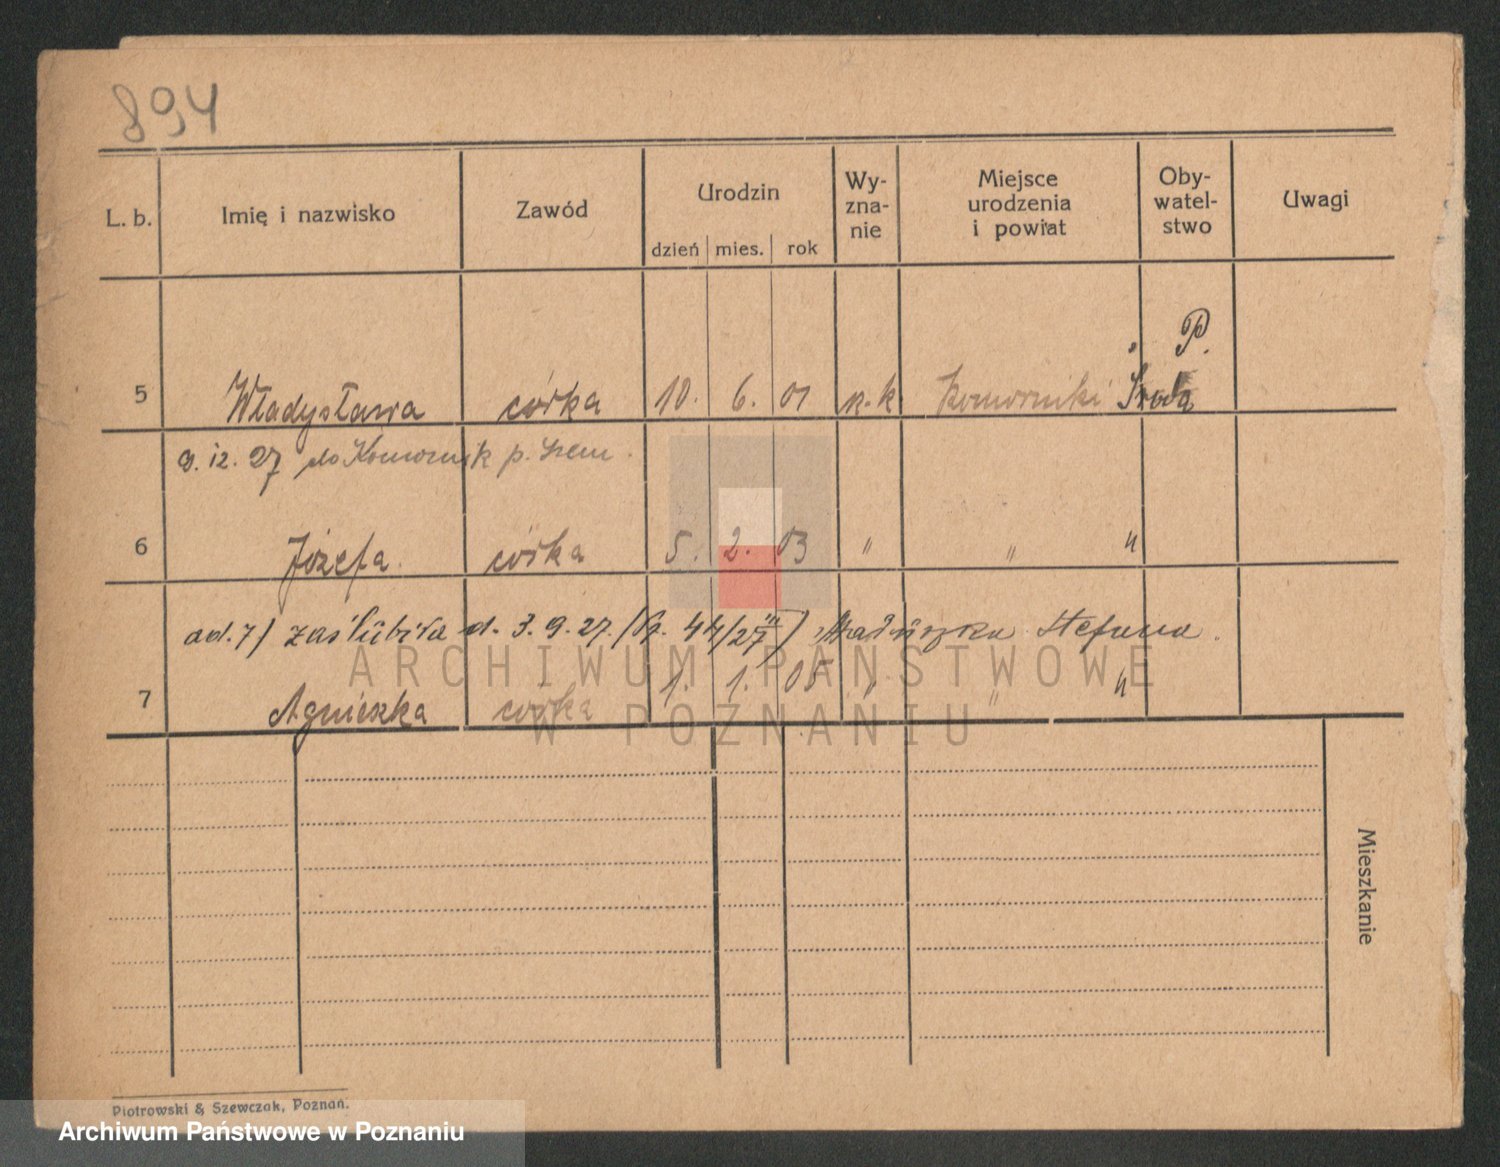 894
L. b. Imię i nazwisko Zawód Urodzin Wy-zna-nie Miejsce urodzenia i powiat Oby-watel-stwo Uwagi
dzień mies. rok
P.
5 Władysława córka 10. 6. 01 r.k Komorniki Środa
9. 12. 27 do Komornik p. Śrem.
6 Józefa. córka 5. 2. 03 " " "
ad. 7) zaślubiła d. 3. 9. 27. 44/27 Stefana.
7 Agnieszka córka 1. 1. 05 " " "
Mieszkanie
Piotrowski & Szewczak, Poznań.
ARCHIWUM PAŃSTWOWE
W POZNANIU
Archiwum Państwowe w Poznaniu